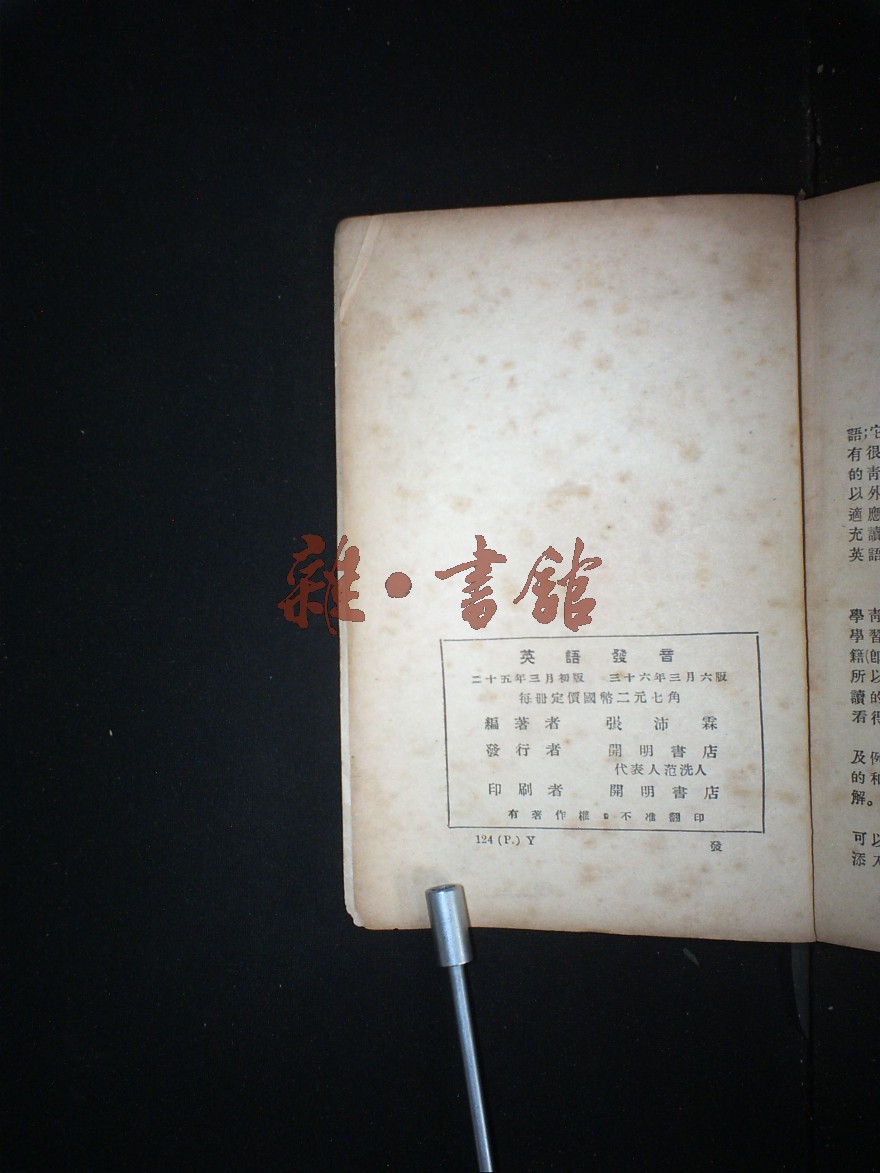 雜·書館
英語發音
二十五年三月初版 三十六年三月六版
每冊定價國幣二元七角
編著者 張沛霖
發行者 開明書店
代表人范洗人
印刷者 開明書店
有著作權 不准翻印
124 (P.) Y 發
語;它
有很
的靑
以外
適應
充讀
英語
學靑
學習
籍(卽
所以
讀的
看得
及例
的和
解。
可以
添入